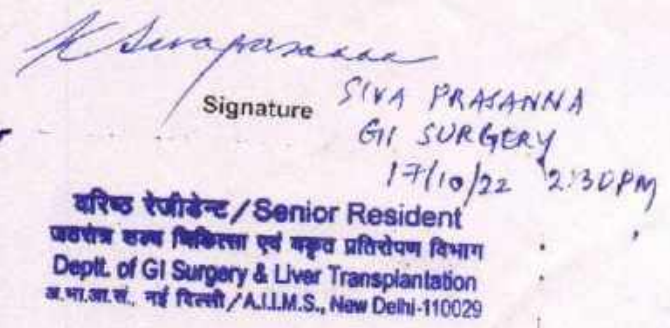 K Sivaprasanna
Signature
SIVA PRASANNA
GI SURGERY
17/10/22 2:30PM
वरिष्ठ रेजीडेन्ट / Senior Resident
जठरांत्र शल्य चिकित्सा एवं यकृत प्रतिरोपण विभाग
Deptt. of GI Surgery & Liver Transplantation
अ.भा.आ.सं., नई दिल्ली / A.I.I.M.S., New Delhi-110029